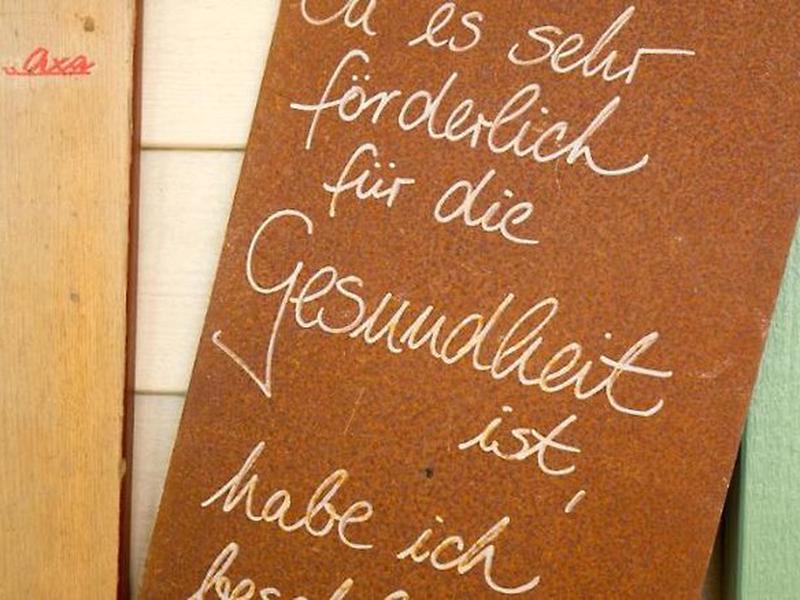 axa
Da es sehr
förderlich
für die
Gesundheit
ist,
habe ich